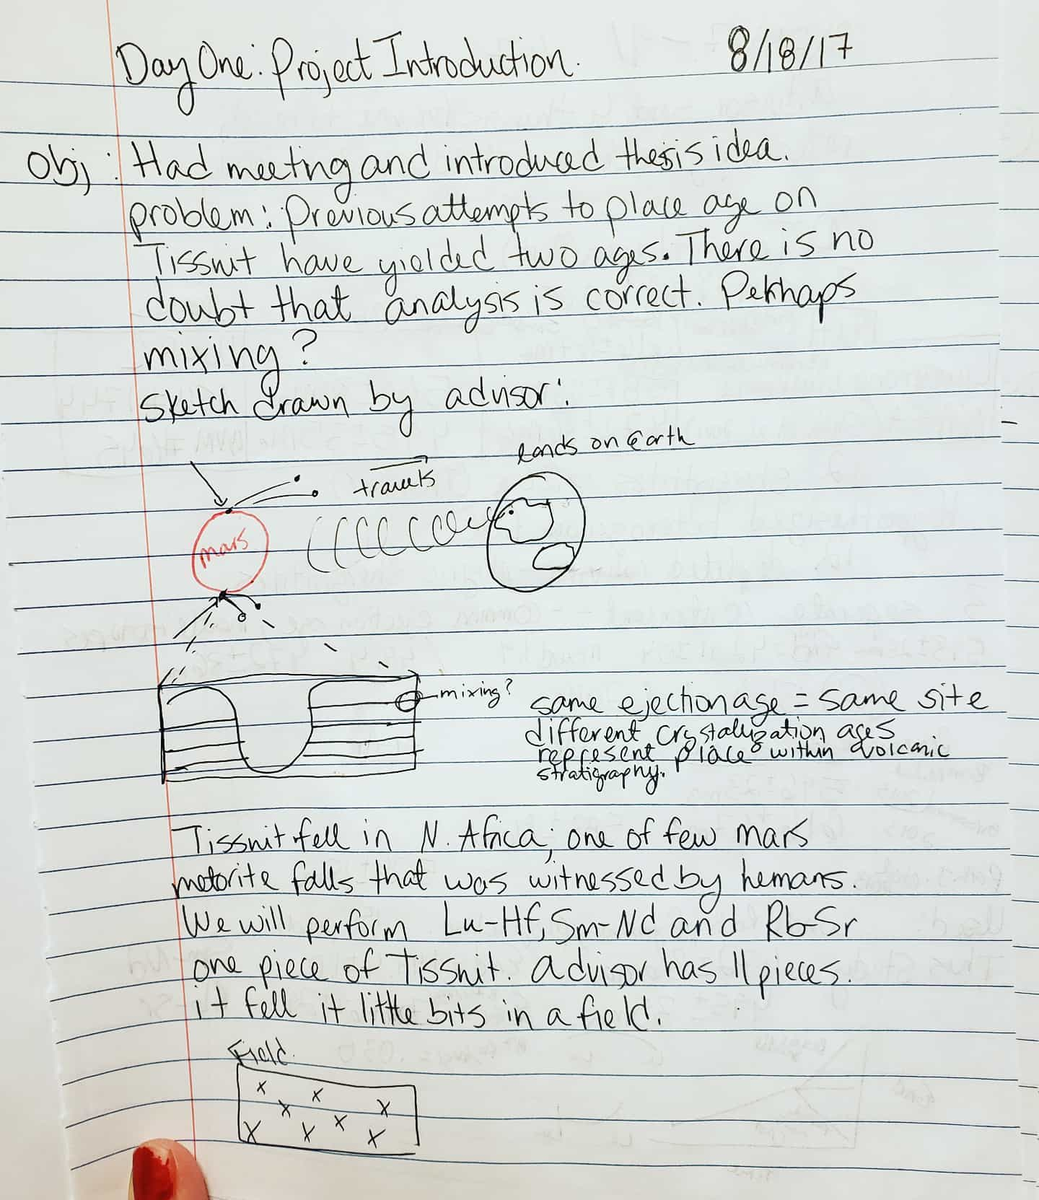 Day One: Project Introduction. 8/18/17
Obj: Had meeting and introduced thesis idea.
problem: Previous attempts to place age on
Tissnit have yielded two ages. There is no
doubt that analysis is correct. Perhaps
mixing?
Sketch drawn by advisor:
lands on Earth
travels
mars
mixing?
same ejection age = same site
different crystallization ages
represent place within a volcanic
stratigraphy.
Tissnit fell in N. Africa; one of few mars
metorite falls that was witnessed by hemans.
We will perform Lu-Hf, Sm-Nd and Rb-Sr
one piece of Tissnit. advisor has 11 pieces.
it fell it little bits in a field.
Field.
x x x x x x x x